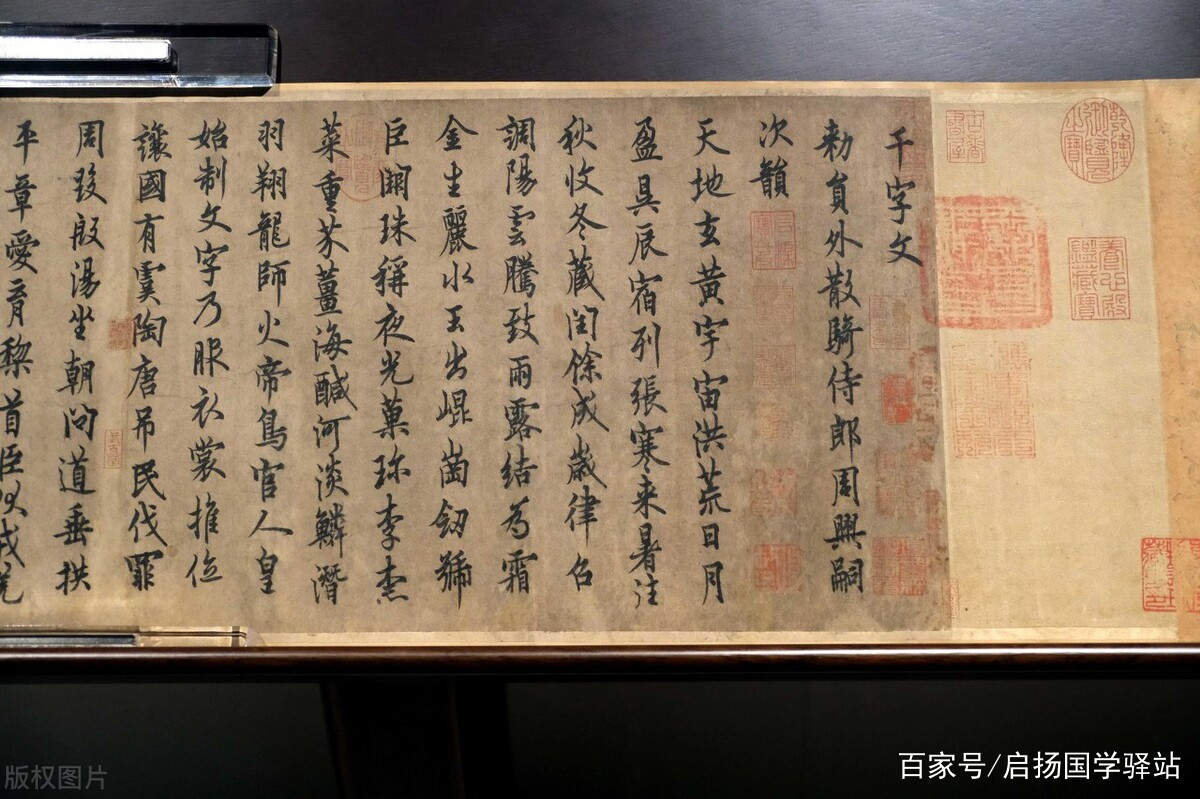 乾隆御覽之寶
養心殿鑑藏寶
千字文
勅員外散騎侍郎周興嗣
次韻
天地玄黄宇宙洪荒日月
盈昃辰宿列張寒来暑往
秋收冬藏閏餘成歲律召
調陽雲騰致雨露結為霜
金生麗水玉出崐崗劒號
巨闕珠稱夜光菓珎李柰
菜重芥薑海醎河淡鱗潛
羽翔龍師火帝鳥官人皇
始制文字乃服衣裳推位
讓國有虞陶唐吊民伐罪
周發殷湯坐朝問道垂拱
平章愛育黎首臣伏戎羌
版权图片
百家号/启扬国学驿站